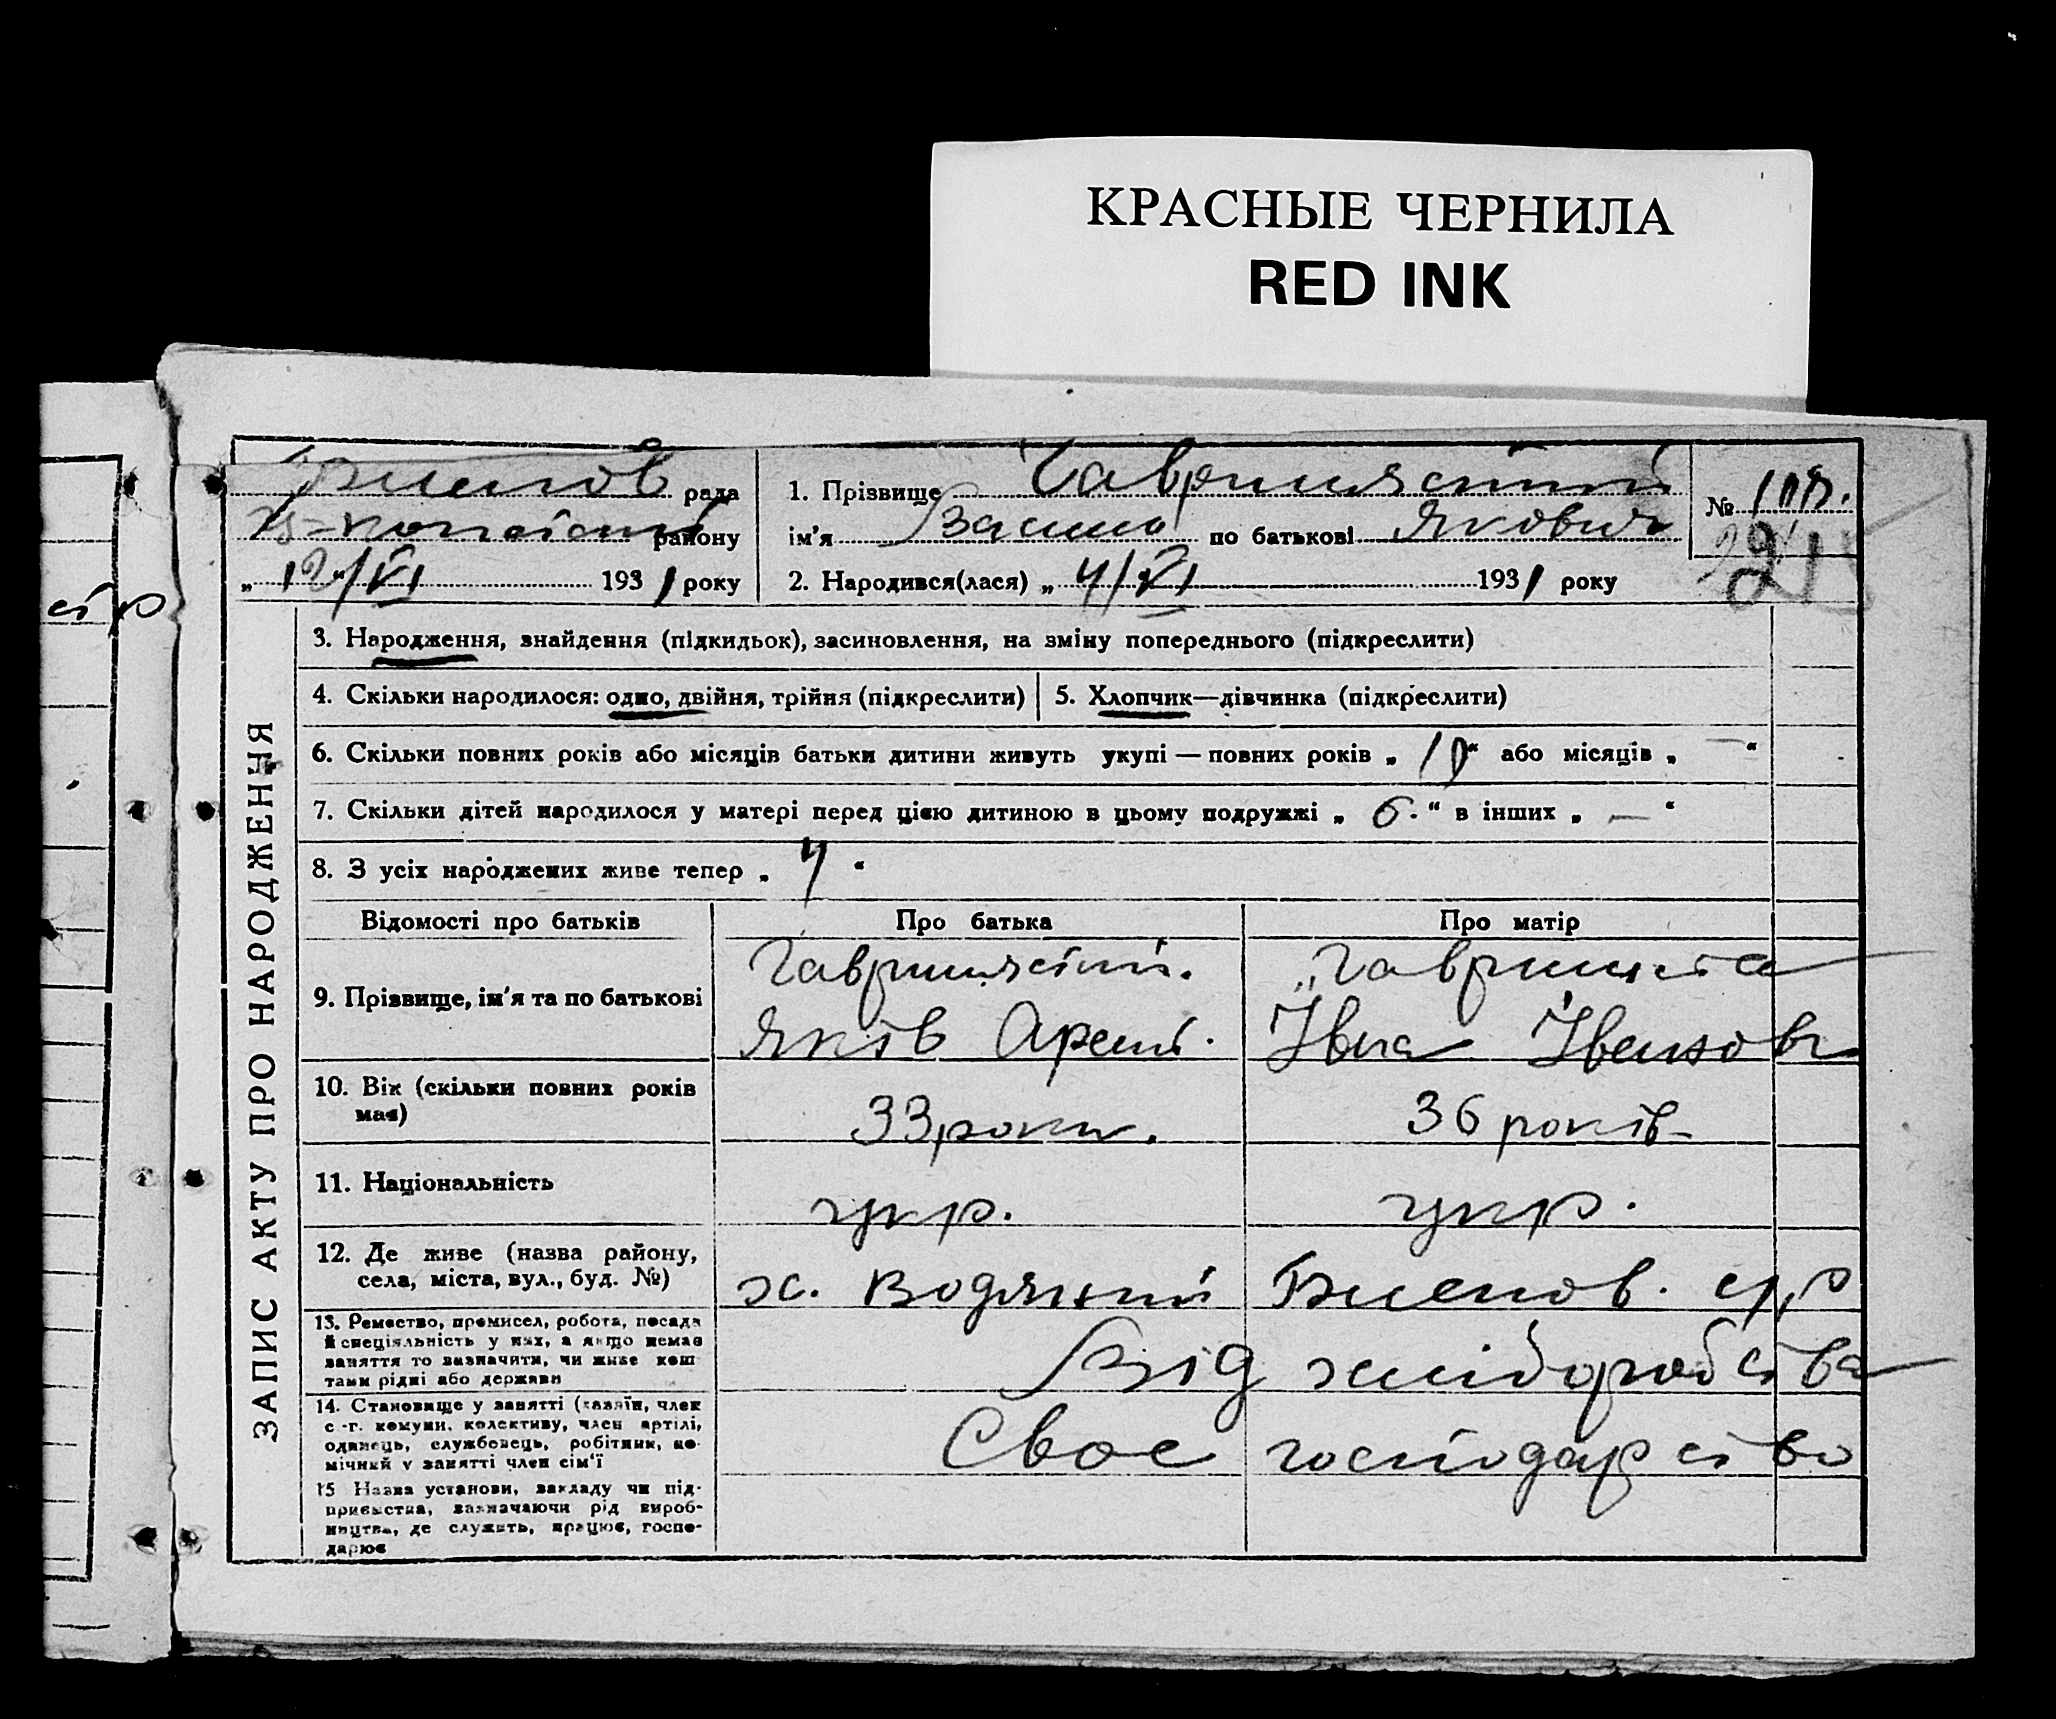 КРАСНЫЕ ЧЕРНИЛА
RED INK
рада
району
„ 12/VI 1931 року
1. Прізвище
ім'я Василь по батькові Якович
2. Народився(лася) „ 4/VI 1931 року
№
ЗАПИС АКТУ ПРО НАРОДЖЕННЯ
3. Народження, знайдення (підкидьок), засиновлення, на зміну попереднього (підкреслити)
4. Скільки народилося: одно, двійня, трійня (підкреслити)
5. Хлопчик—дівчинка (підкреслити)
6. Скільки повних років або місяців батьки дитини живуть укупі — повних років „ “ або місяців „ — “
7. Скільки дітей народилося у матері перед цією дитиною в цьому подружжі „ 6. “ в інших „ — “
8. З усіх народжених живе тепер „ 4 “
Відомості про батьків
Про батька
Про матір
9. Прізвище, ім'я та по батькові
Яків
10. Вік (скільки повних років має)
33 роки.
36 років
11. Національність
укр.
укр.
12. Де живе (назва району,
села, міста, вул., буд. №)
х. Водяний
с/р
13. Ремество, промисел, робота, посада
й спеціяльність у них, а якщо немає
заняття то зазначити, чи живе кош
тами рідні або держави
Від хліборобства
14. Становище у занятті (хазяїн, член
с-г. комуни, колективу, член артілі,
одинець, службовець, робітник, по-
мічний у занятті член сім'ї
Своє господарство
15 Назва установи, закладу чи під-
приємства, зазначаючи рід вироб-
ництва, де служить, працює, госпо-
дарює